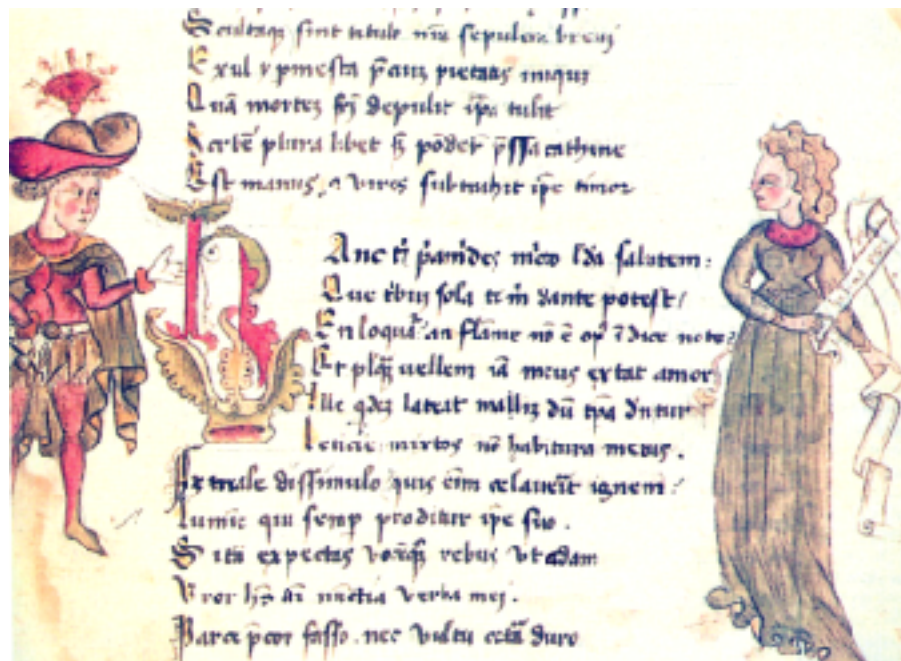 Scultaqz sint titulo nr̄a sepulcra breui
Exul ypmestra p̄ciuz pietatis iniqui
Quā mortez fr̄i depulit ip̄a tulit
plura libet sz pōdere p̄ssa cathene
Est manus, a vires subtrahit ip̄e timor
Anc t' p'amides m'cto lda salutem:
Que t'bui sola te m' dante potest/
En loquar an flāme nō ē op' īdice note?
Et plqz uellem iā meus extat amor
Ille qdez lateat dū tp̄a dntur
leticie mixtos nō habitura metus.
male dissimulo quis eīm celauerit ignem?
lumīe qui semp proditur ip̄e suo.
Si tn̄ expectas rebus vt addam
Vror hn̄s āi nūctia verba mei.
Parce p̄cor fasso. nec vultu duro